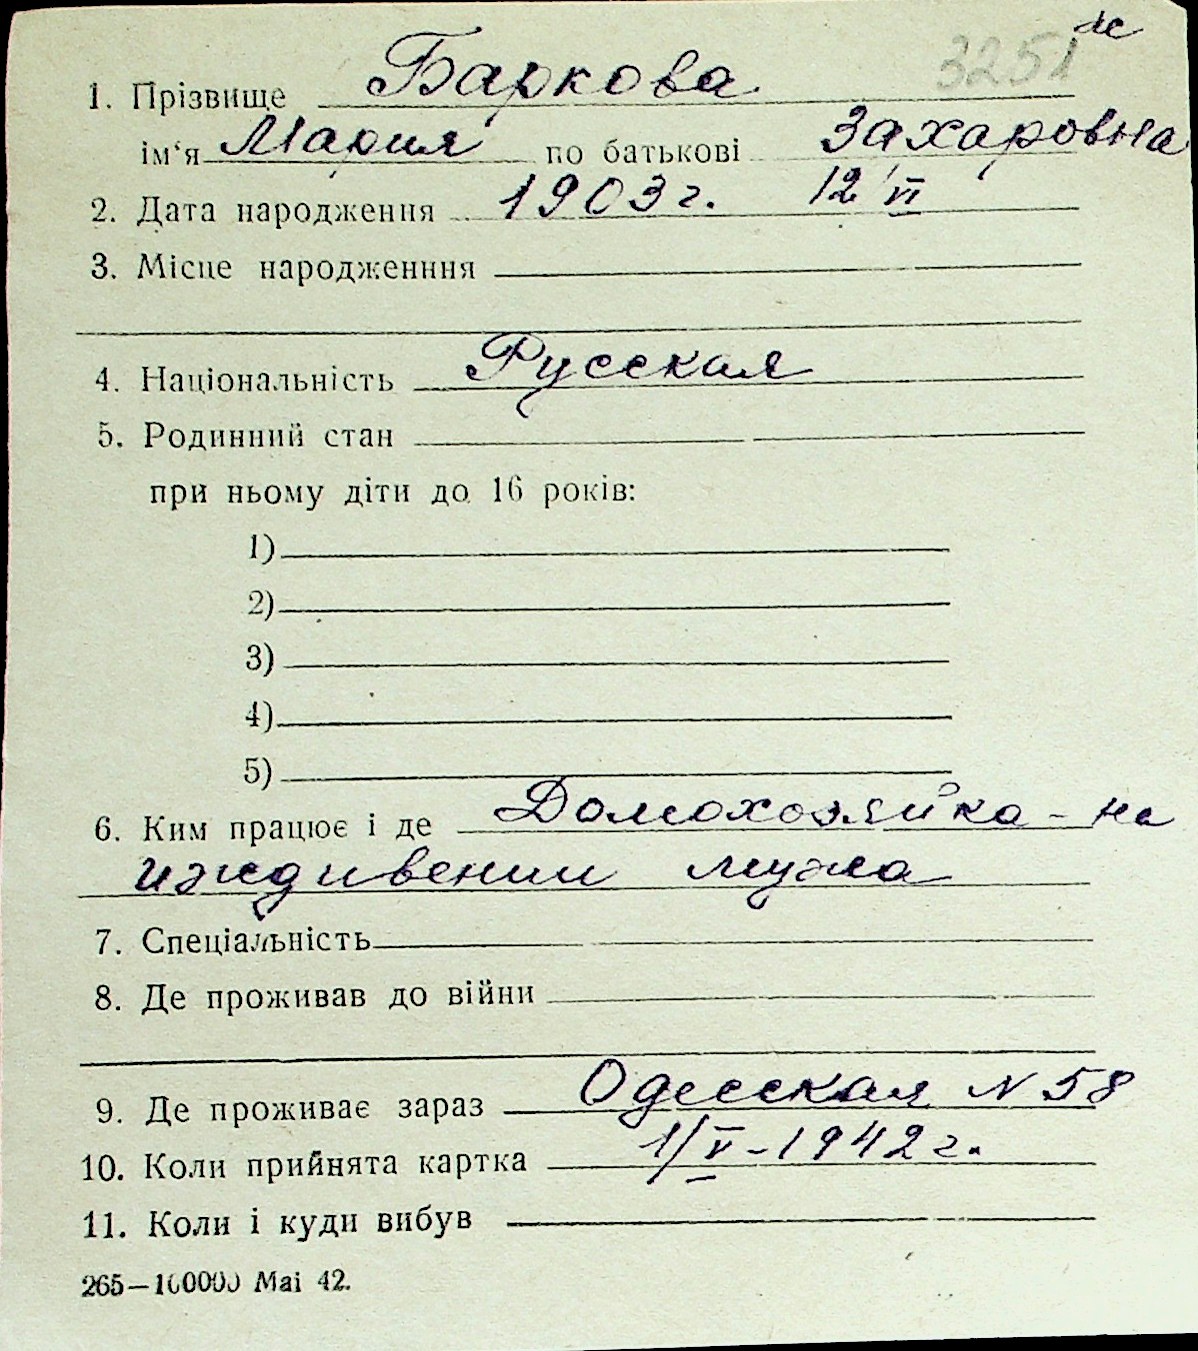 3251
1. Прізвище Баркова
ім‘я Мария по батькові Захаровна
2. Дата народження 1903 г. 12/VI
3. Місце народженння
4. Національність Русская
5. Родинний стан
при ньому діти до 16 років:
1)
2)
3)
4)
5)
6. Ким працює і де Домохозяйка - на
иждивении мужа
7. Спеціальність
8. Де проживав до війни
9. Де проживає зараз Одесская N 58
10. Коли прийнята картка 1/V-1942 г.
11. Коли і куди вибув
265—100000 Mai 42.